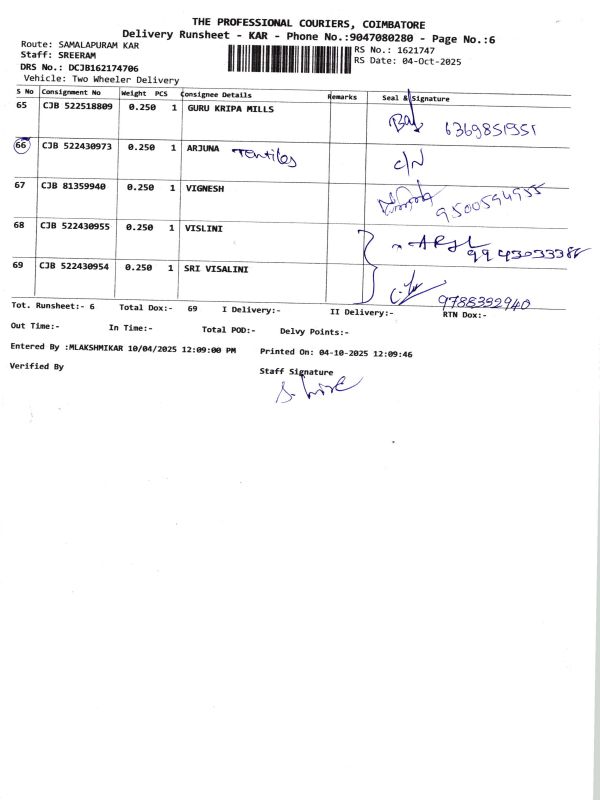 THE PROFESSIONAL COURIERS, COIMBATORE
Delivery Runsheet - KAR - Phone No.:9047080280 - Page No.:6
Route: SAMALAPURAM KAR
RS No.: 1621747
Staff: SREERAM
RS Date: 04-Oct-2025
DRS No.: DCJB162174706
Vehicle: Two Wheeler Delivery
S No Consignment No Weight PCS Consignee Details Remarks Seal & Signature
65 CJB 522518809 0.250 1 GURU KRIPA MILLS 6369851951
66 CJB 522430973 0.250 1 ARJUNA C/N
67 CJB 81359940 0.250 1 VIGNESH 9500594955
68 CJB 522430955 0.250 1 VISLINI
69 CJB 522430954 0.250 1 SRI VISALINI 9788392940
Tot. Runsheet:- 6 Total Dox:- 69 I Delivery:- II Delivery:- RTN Dox:-
Out Time:- In Time:- Total POD:- Delvy Points:-
Entered By :MLAKSHMIKAR 10/04/2025 12:09:00 PM Printed On: 04-10-2025 12:09:46
Verified By
Staff Signature